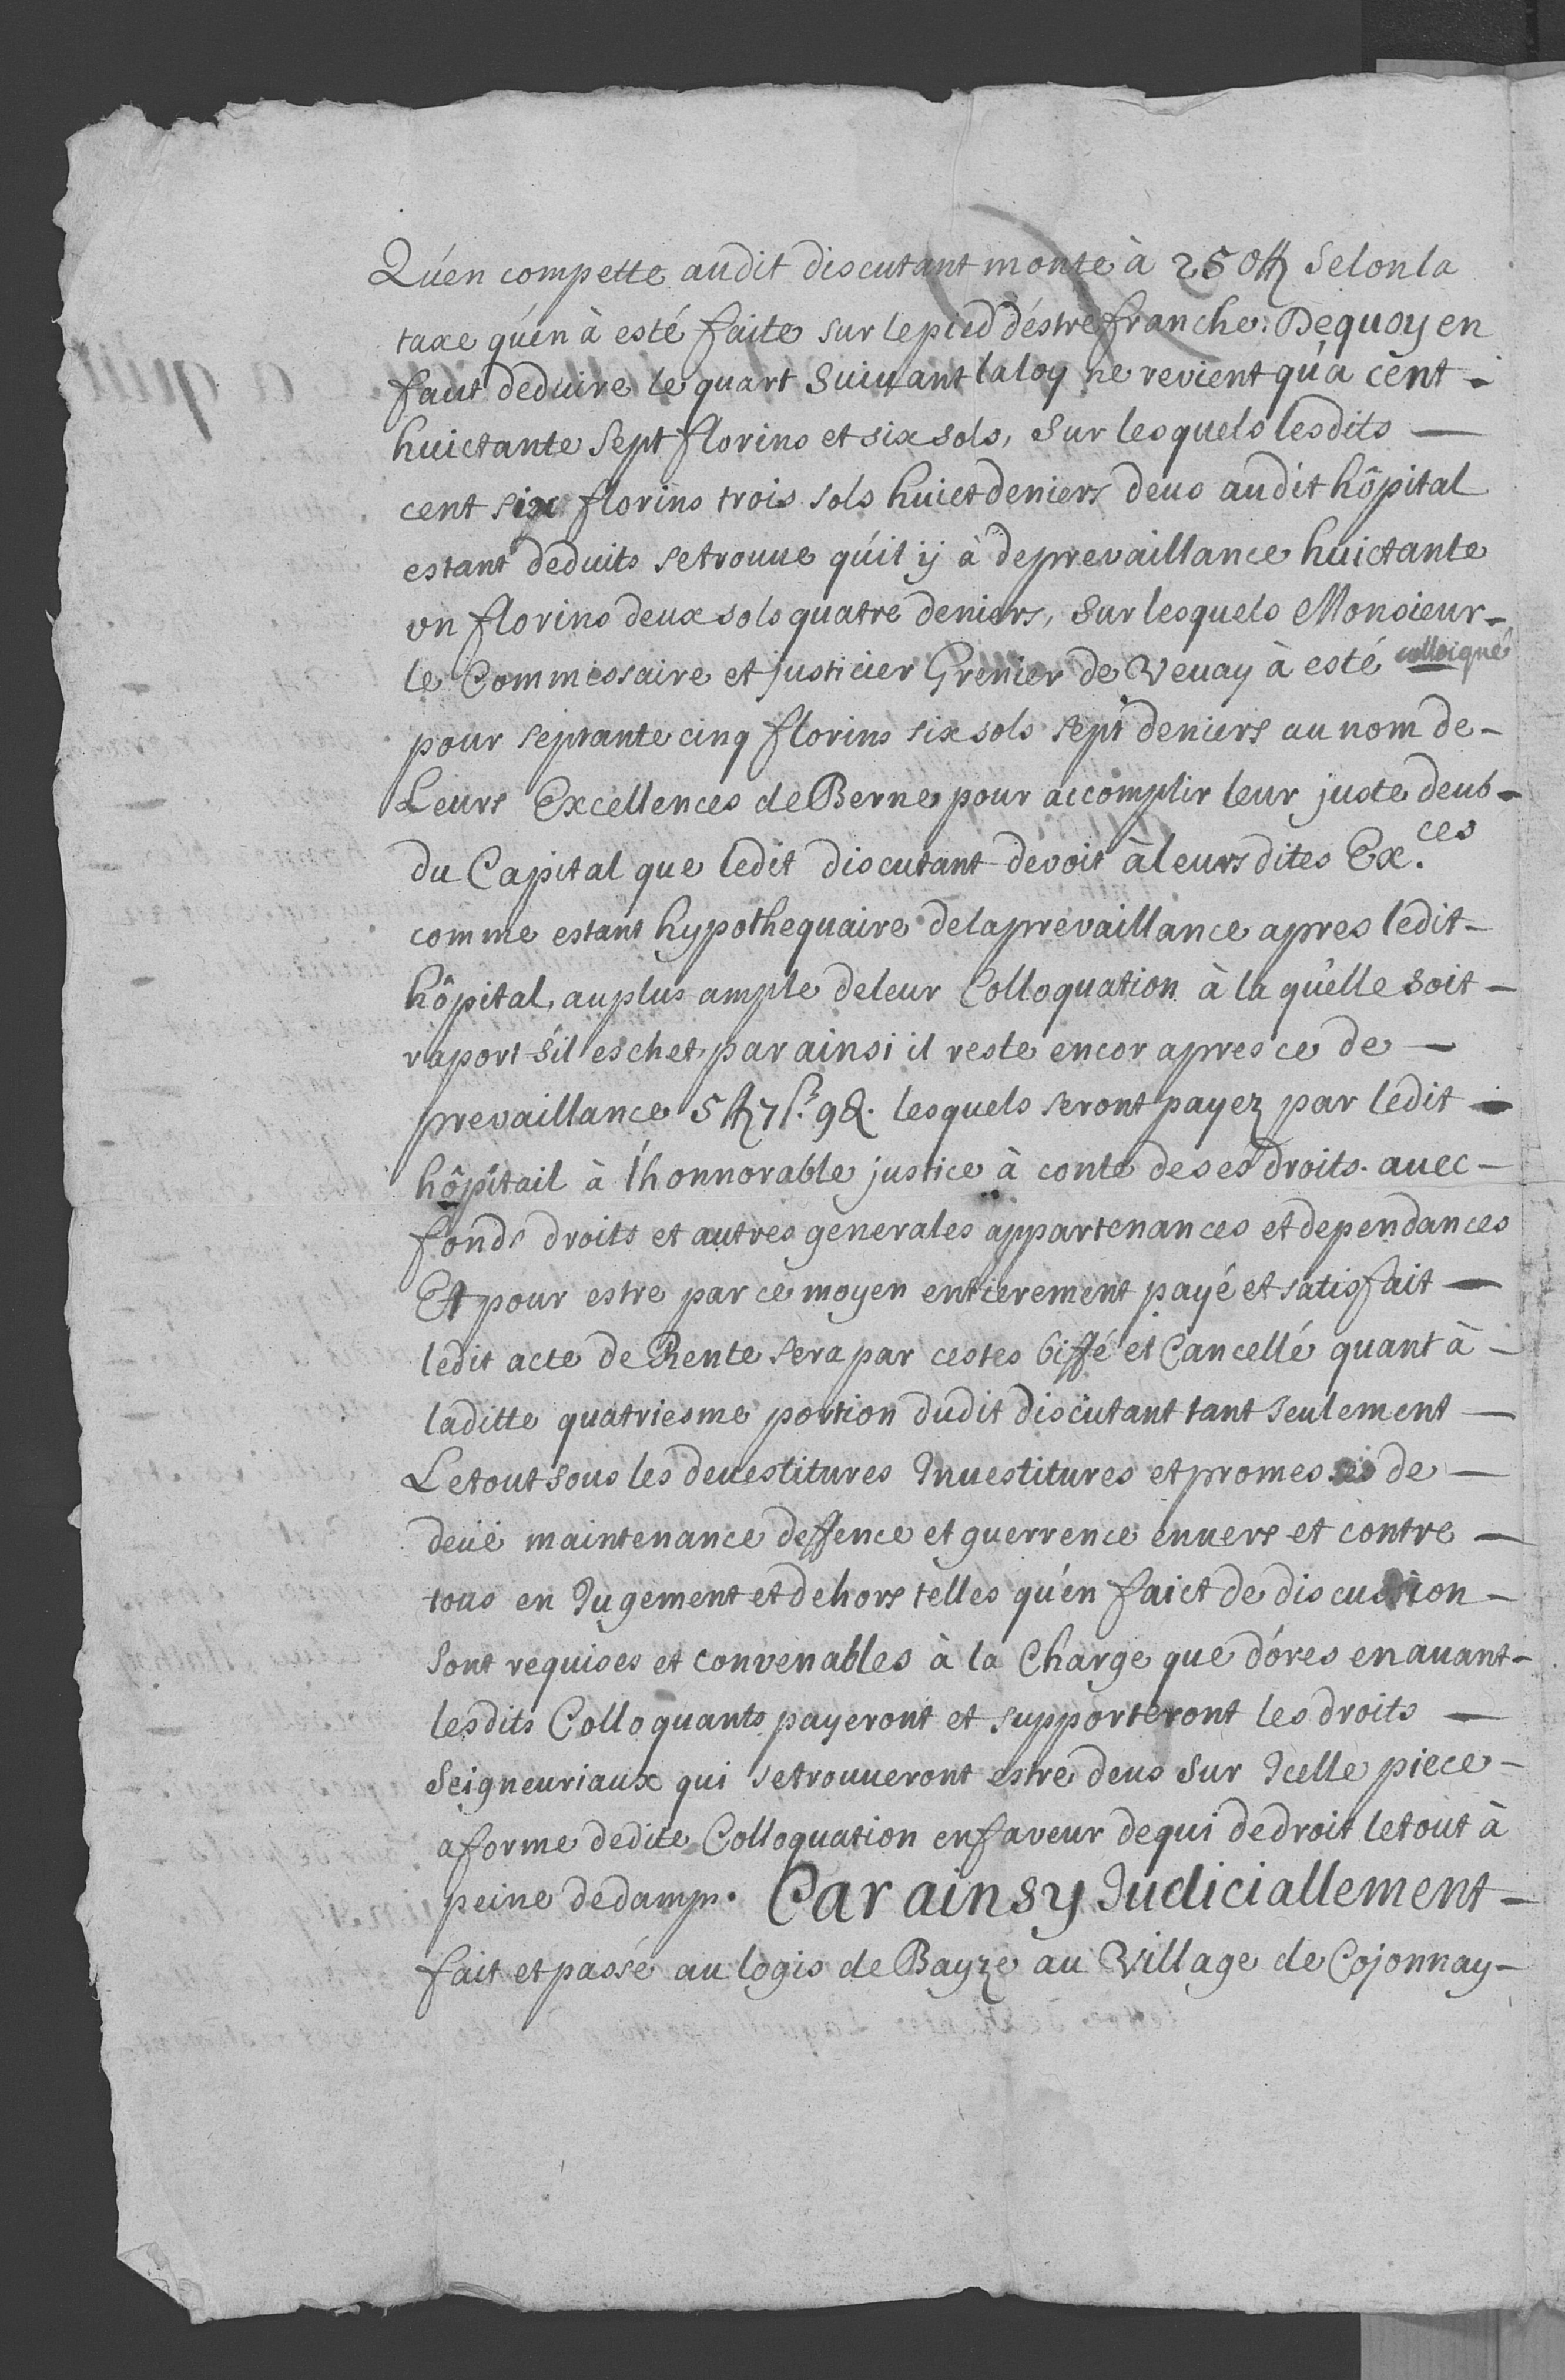 Qu'en compette audit discutant monte à 250 ff Selon la
taxe qu'en à esté faite sur le pied d'éstre franche: Dequoy en
faut deduire le quart Suivant la loy ne revient qu'a cent -
huictante Sept florins et six sols, Sur lesquels lesdits -
cent six florins trois sols huict deniers deus audit hôpital
estant deduits se trouue qu'il ÿ à de prevaillance huictante
vn florins deux sols quatre deniers, Sur lesquels Monsieur -
le Commissaire et justicier Grenier de Vevay à esté colloiqué
pour septante cinq florins six sols sept deniers au nom de -
Leurs Excellences de Berne pour accomplir leur juste deub -
du Capital que ledit discutant devoit à leurs dites Ex.ces
comme estant hypothequaire de la prevaillance apres ledit -
hôpital, au plus ample de leur Colloquation à la quelle soit -
raport s'il eschet, par ainsi il reste encor apres ce de -
prevaillance 5 ff 7 s. 9 d. lesquels seront payez par ledit -
hôpitail à l'honnorable justice à conte de ses droits. auec -
fonds droits et autres generales appartenances et dependances
Et pour estre par ce moyen entierement payé et satisfait -
ledit acte de Rente sera par cestes biffé et Cancellé quant à -
laditte quatriesme portion dudit discutant tant seulement -
Le tout sous les deuestitures Inuestitures et promesses de -
deüe maintenance deffence et guerrence enuers et contre -
tous en Jugement et dehors telles qu'en faict de discussion -
sont requises et convenables à la Charge que d'ores en auant -
lesdits Colloquants payeront et supporteront les droits -
Seigneuriaux qui se trouueront estre deus sur Icelle piece -
a forme de dite Colloquation en faveur de qui de droit le tout à
peine de damps. Car ainsy Judiciallement -
fait et passé au logis de Bayze au Village de Cojonnay -